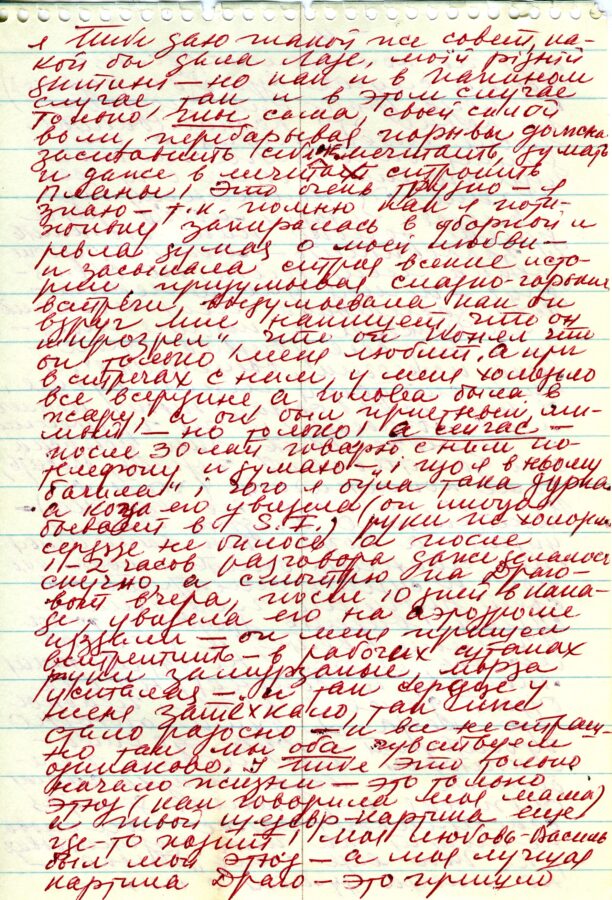 я Тебе даю такой же совет, ка-
кой бы дала Лазе, моїй рідній
дитині — но как и в папином
случае так и в этом случае
только ты сама, своей силой
воли, перебарывая порывы должна
заставить себя мечтать, думать
и даже в мечтах строить
планы! Это очень трудно — я
знаю — т.к. помню как я поти-
хоньку запиралась в уборной и
ревела думая о моей любви —
и засыпала строя всякие исто-
рии, придумывая сладко-горькие
встречи, выдумывала как он
вдруг мне напишет, что он
"прозрел", что он понял что
он только меня любит, а при
встречах с ним, у меня холодно
все в середине а голова была в
жару, а он был приятным, ми-
лым — но только! а сейчас —
после 30 лет говорю с ним по
телефону и думаю — "і що я в ньому
бачила" і чого я була така дурна
а когда его увидела (он иногда
бывает в S.F.) руки не холодны
сердце не билось, а после
1-2 часов разговора даже делалось
скучно, а смотрю на Драго —
вот вчера, после 10 дней в Кана-
де увидела его на аэродроме
издали — он меня пришел
встретить — в рабочих штанах
руки замурзаные, морда
усталая — и так сердце у
меня затёхкало, так мне
стало радосно — и все не страш-
но так мы оба чувствуем
одинаково. У тебе это только
начало жизни — это только
этюд (как говорила моя мама)
а твой шедевр-картина еще
где-то ходит! Моя любовь-Василь
был мой этюд — а моя лучшая
картина Драго — это пришло